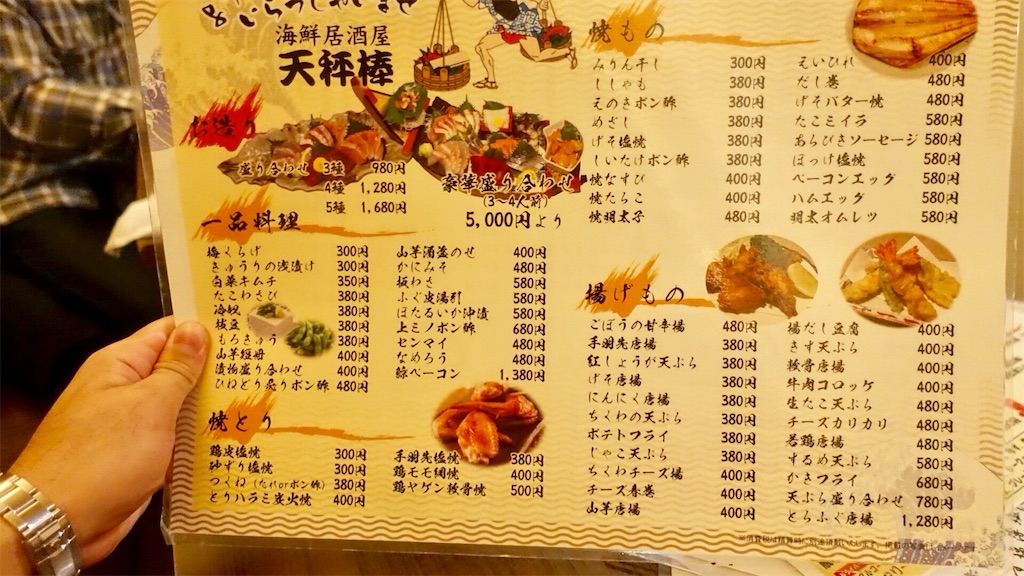 & いらっしゃいませ
海鮮居酒屋
天秤棒
お造り
盛り合わせ 3種 980円
4種 1,280円
5種 1,680円
豪華盛り合わせ
(3～4人前)
5,000円より
一品料理
梅くらげ 300円
きゅうりの浅漬け 300円
白菜キムチ 350円
たこわさび 380円
海奴 380円
枝豆 380円
もろきゅう 380円
山芋短冊 400円
漬物盛り合わせ 400円
ひねどり炙りポン酢 480円
山芋酒盗のせ 400円
かにみそ 480円
板わさ 580円
ふぐ皮湯引 580円
ほたるいか沖漬 580円
上ミノポン酢 680円
センマイ 480円
なめろう 480円
鯨ベーコン 1,380円
焼とり
鶏皮塩焼 300円
砂ずり塩焼 300円
つくね(たれorポン酢) 380円
とりハラミ炭火焼 400円
手羽先塩焼 380円
鶏モモ網焼 400円
鶏ヤゲン軟骨焼 500円
焼もの
みりん干し 300円
ししゃも 380円
えのきポン酢 380円
めざし 380円
げそ塩焼 380円
しいたけポン酢 380円
焼なすび 400円
焼たらこ 400円
焼明太子 480円
えいひれ 400円
だし巻 480円
げそバター焼 480円
たこミイラ 580円
あらびきソーセージ 580円
ほっけ塩焼 580円
ベーコンエッグ 580円
ハムエッグ 580円
明太オムレツ 580円
揚げもの
ごぼうの甘辛揚 480円
手羽先唐揚 380円
紅しょうが天ぷら 380円
げそ唐揚 380円
にんにく唐揚 380円
ちくわの天ぷら 380円
ポテトフライ 380円
じゃこ天ぷら 380円
ちくわチーズ揚 400円
チーズ春巻 400円
山芋唐揚 400円
揚だし豆腐 400円
きす天ぷら 400円
軟骨唐揚 400円
牛肉コロッケ 400円
生たこ天ぷら 480円
チーズカリカリ 480円
若鶏唐揚 480円
するめ天ぷら 580円
かきフライ 680円
天ぷら盛り合わせ 780円
とらふぐ唐揚 1,280円
※消費税は精算時に別途頂戴いたします。